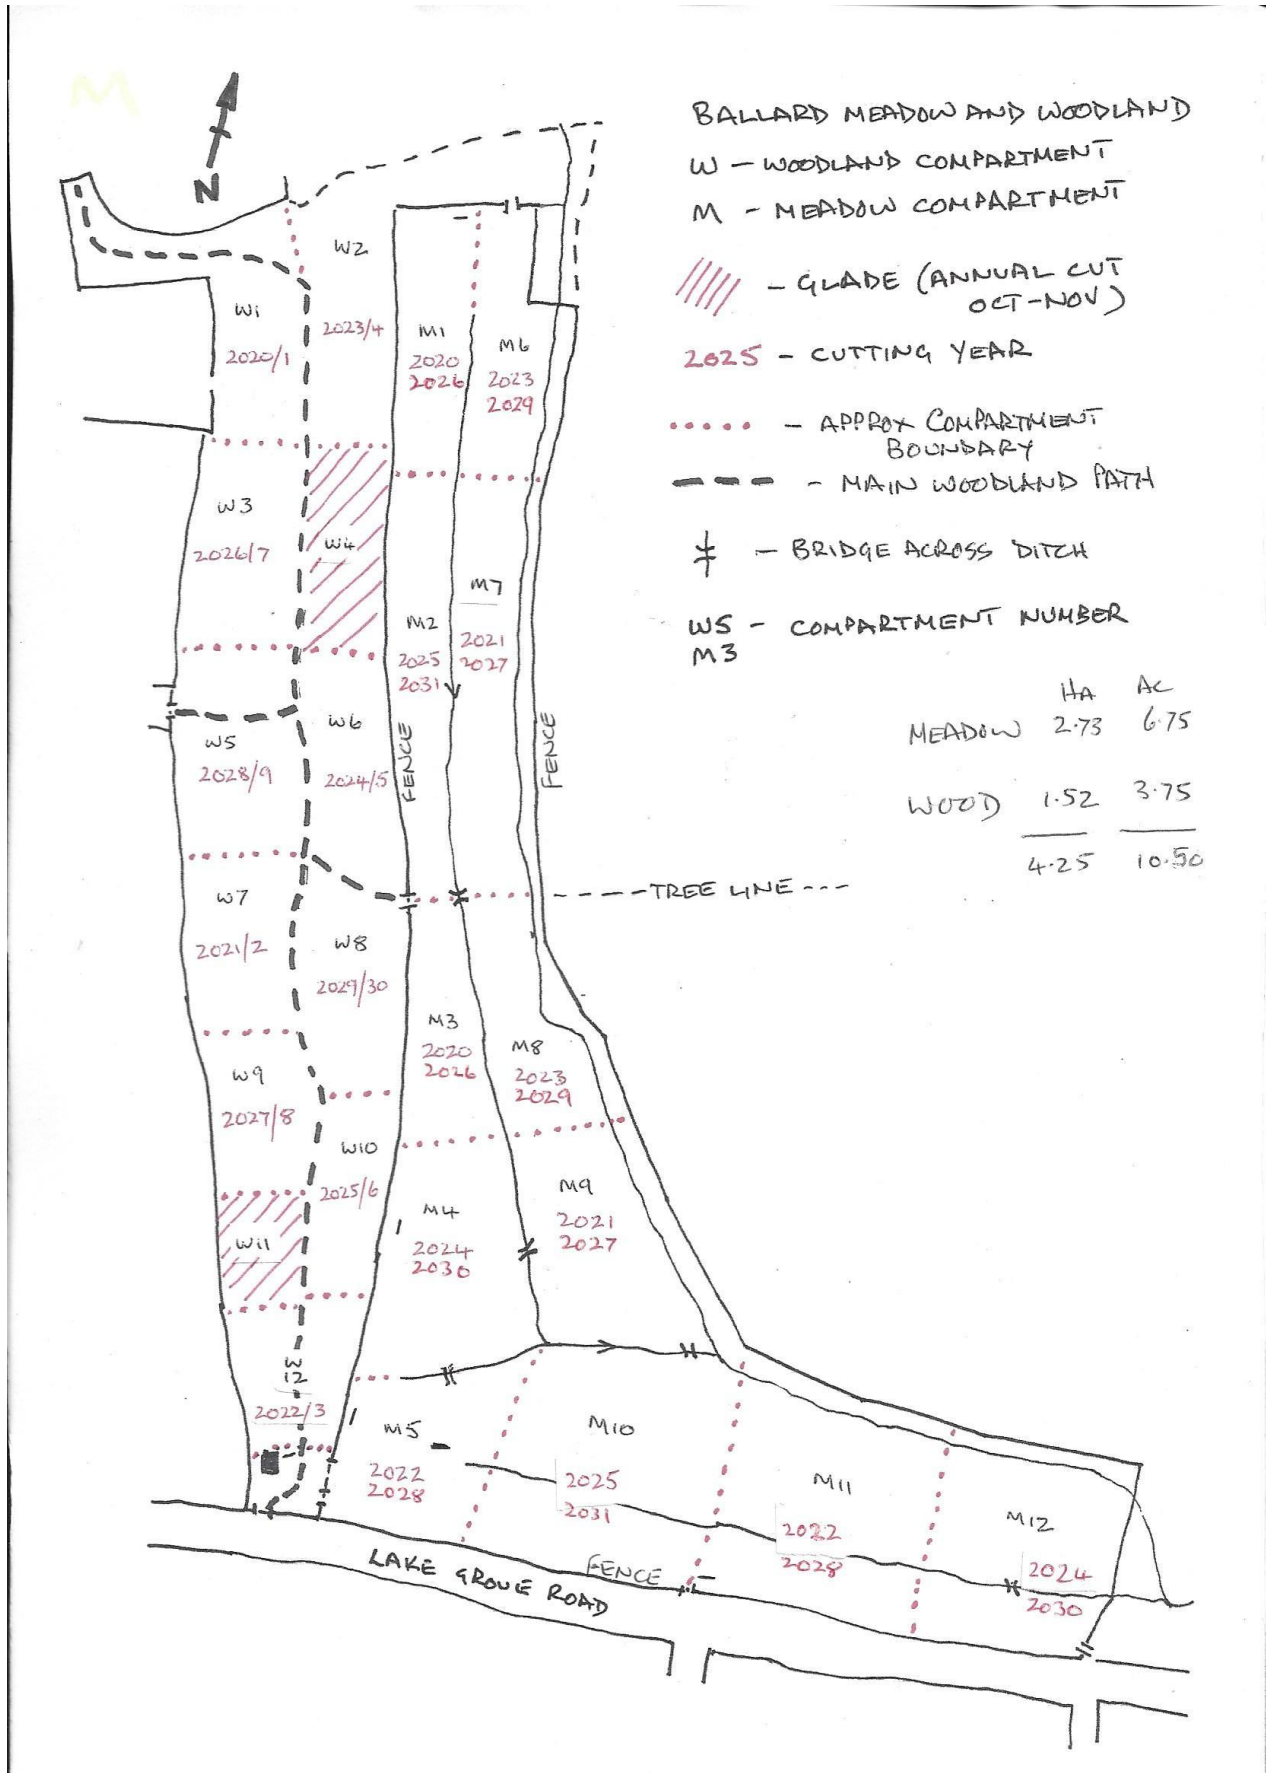 M
N
BALLARD MEADOW AND WOODLAND
W - WOODLAND COMPARTMENT
M - MEADOW COMPARTMENT
- GLADE (ANNUAL CUT
OCT-NOV)
2025 - CUTTING YEAR
- APPROX COMPARTMENT
BOUNDARY
- MAIN WOODLAND PATH
- BRIDGE ACROSS DITCH
W5 - COMPARTMENT NUMBER
M3
HA AC
MEADOW 2.73 6.75
WOOD 1.52 3.75
4.25 10.50
W1
2020/1
W2
2023/4
M1
2020
2026
M6
2023
2029
W3
2026/7
W4
M2
2025
2031
M7
2021
2027
W5
2028/9
W6
2024/5
FENCE
FENCE
W7
2021/2
W8
2029/30
TREE LINE
M3
2020
2026
M8
2023
2029
W9
2027/8
W10
2025/6
M4
2024
2030
M9
2021
2027
W11
W
12
2022/3
M5
2022
2028
M10
2025
2031
M11
2022
2028
M12
2024
2030
FENCE
LAKE GROVE ROAD